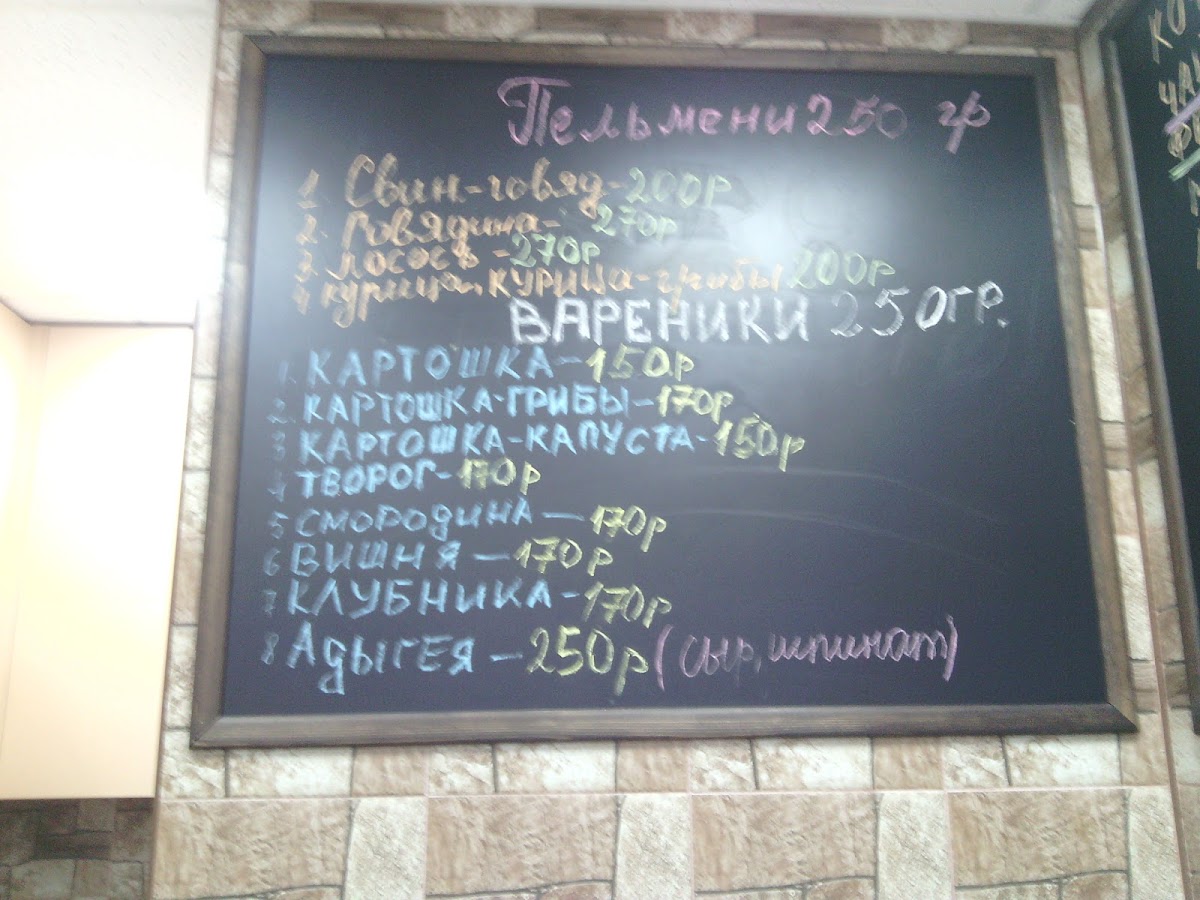 Пельмени 250 гр
1. Свин-говяд-200р
2. Говядина- 270р
3. Лосось-270р
4 курица, КУРИЦА-грибы 200р
ВАРЕНИКИ 250гр.
1. КАРТОШКА-150р
2. КАРТОШКА-ГРИБЫ-170р
3 КАРТОШКА-КАПУСТА-150р
4 ТВОРОГ-170р
5 СМОРОДИНА-170р
6 ВИШНЯ-170р
7 КЛУБНИКА-170р
8 АДЫГЕЯ-250р (сыр, шпинат)